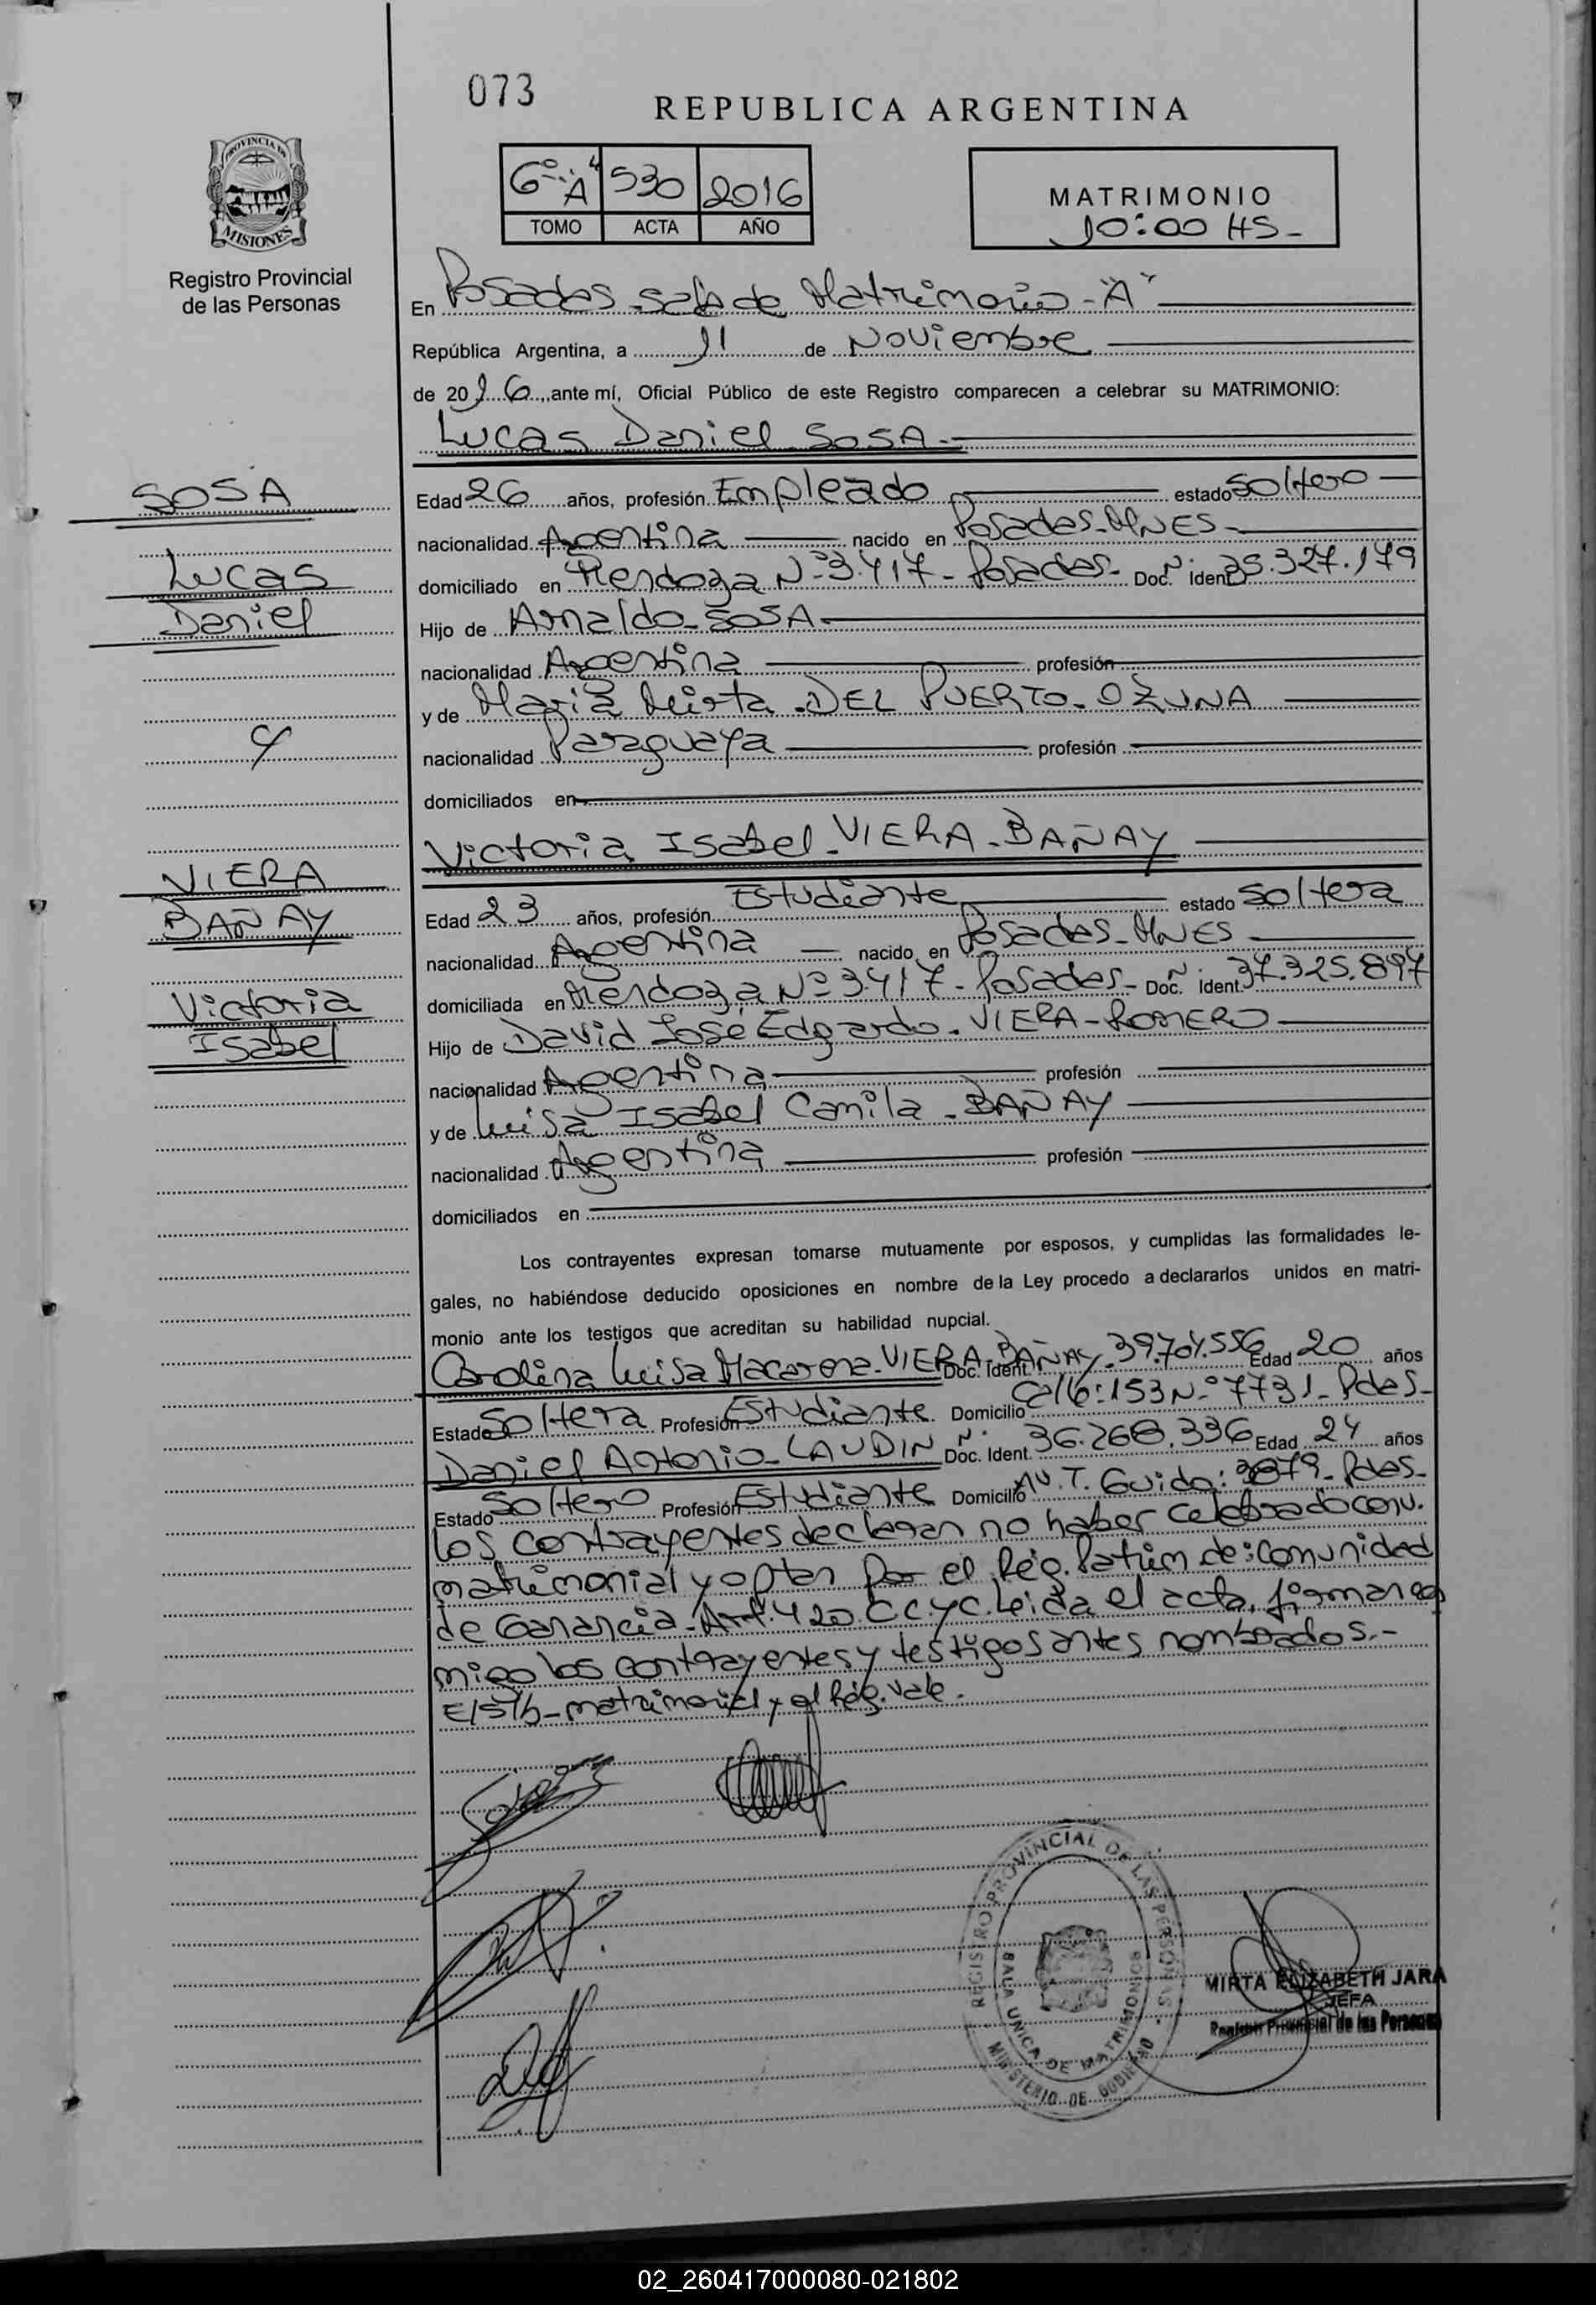 073
REPUBLICA ARGENTINA
PROVINCIA DE
MISIONES
Registro Provincial
de las Personas
6º "A" 530 2016
TOMO ACTA AÑO
MATRIMONIO
10:00 HS-
En Posadas - sala de Matrimonio - "A"
República Argentina, a 11 de Noviembre
de 2016, ante mí, Oficial Público de este Registro comparecen a celebrar su MATRIMONIO:
Lucas Daniel SOSA
SOSA
Lucas
Daniel
Edad 26 años, profesión Empleado estado Soltero
nacionalidad Argentina nacido en Posadas - MNES -
domiciliado en Mendoza Nº 3.417 - Posadas - Doc. Nº Ident. 35.327.179
Hijo de Arnaldo SOSA
nacionalidad Argentina profesión
y de Maria Mirta DEL PUERTO - OZUNA
nacionalidad Paraguaya profesión
domiciliados en
Victoria Isabel VIERA - BAÑAY
VIERA
BAÑAY
Victoria
Isabel
Edad 23 años, profesión Estudiante estado Soltera
nacionalidad Argentina nacido en Posadas - MNES
domiciliada en Mendoza Nº 3.417 - Posadas - Doc. Nº Ident. 37.325.897
Hijo de David José Edgardo - VIERA - ROMERO
nacionalidad Argentina profesión
y de Luisa Isabel Camila - BAÑAY
nacionalidad Argentina profesión
domiciliados en
Los contrayentes expresan tomarse mutuamente por esposos, y cumplidas las formalidades le-
gales, no habiéndose deducido oposiciones en nombre de la Ley procedo a declararlos unidos en matri-
monio ante los testigos que acreditan su habilidad nupcial.
Carolina Luisa Macarena - VIERA - BAÑAY Doc. Ident. 39.701.556 Edad 20 años
Estado Soltera Profesión Estudiante Domicilio Calle: 153 Nº 7731 - Pdas -
Daniel Antonio - LAUDIN Doc. Nº Ident. 36.268.336 Edad 24 años
Estado Soltero Profesión Estudiante Domicilio Av. T. Guido: - Pdas -
Los contrayentes declaran no haber celebrado conv.
matrimonial y optan por el Rég. Patrim de: comunidad
de Ganancia - Art. 420 C.C.y C. Leida el acta, firman con
migo los contrayentes y testigos antes nombrados.-
E/ST/b - matrimonial y el Rég. Vale.
REGISTRO PROVINCIAL DE LAS PERSONAS
SALA UNICA DE MATRIMONIOS
MINISTERIO DE GOBIERNO
MIRTA ELIZABETH JARA
JEFA
Registro Provincial de las Personas
02_260417000080-021802